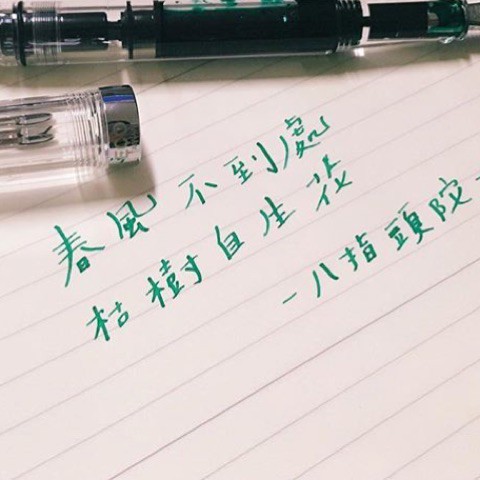 春風不到處
枯樹自生花
－八指頭陀－